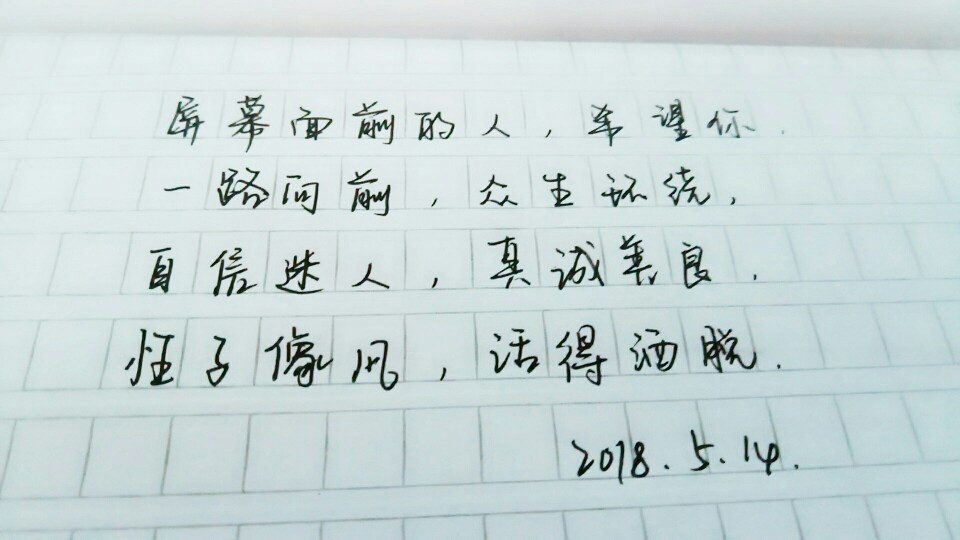 屏幕面前的人，希望你
一路向前，众生环绕，
自信迷人，真诚善良．
性子像风，活得洒脱．
2018.5.14.